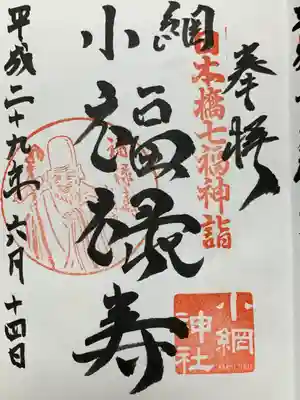 奉拝
日本橋七福神詣
小網
福禄寿
小網神社
平成二十九年六月十四日